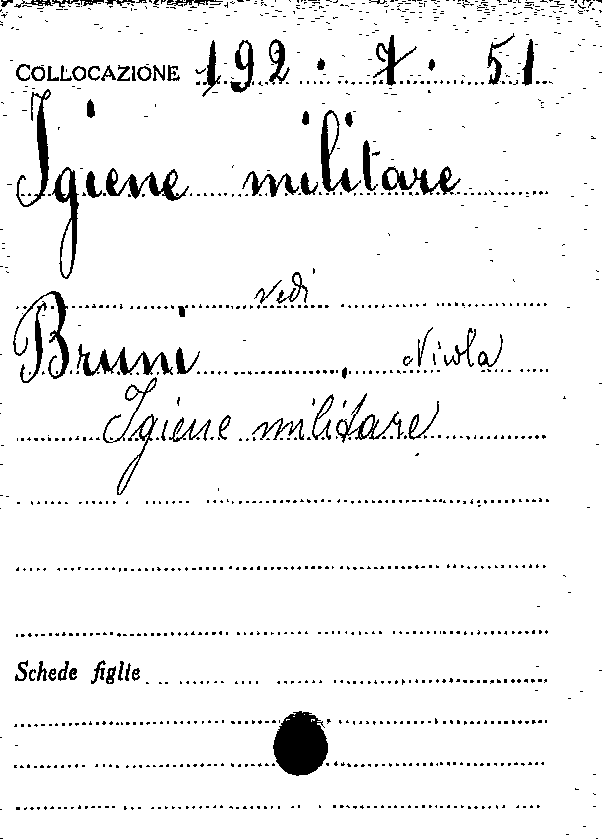 COLLOCAZIONE 192. 7. 51
Igiene militare
vedi
Bruni, Nicola
Igiene militare
Schede figlie